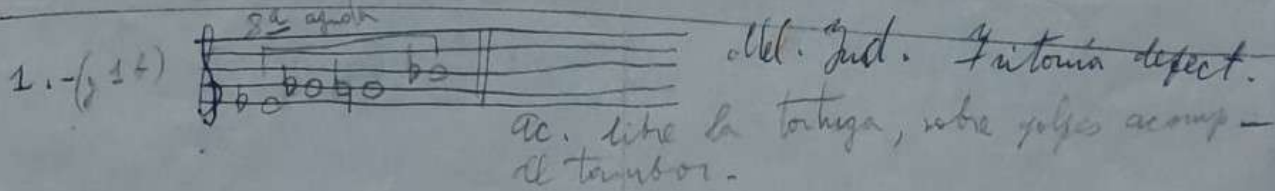 8ª aguda
1.-(y 1 t) Mel. Ind. Fintonía defect.
ac. libre la tortuga, sobre golpes acomp-
el tambor.